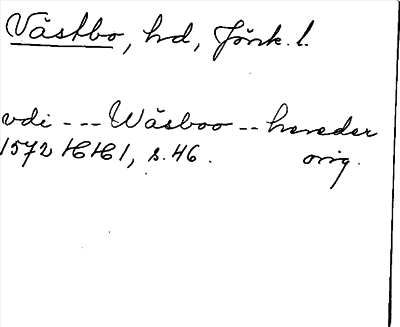 Västbo, hd, Jönk. l.
vdi --- Wäsboo -- hereder
1572 HH 1, s. 46. orig.